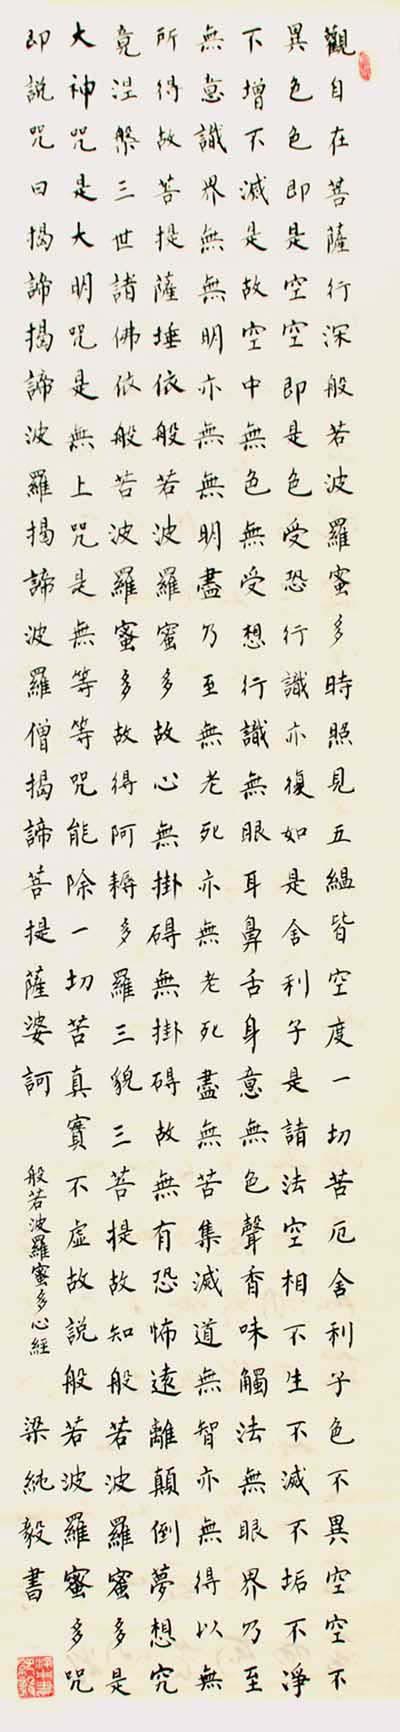 觀自在菩薩行深般若波羅蜜多時照見五緼皆空度一切苦厄舍利子色不異空空不
異色色即是空空即是色受恐行識亦復如是舍利子是諸法空相不生不滅不垢不淨
不增不減是故空中無色無受想行識無眼耳鼻舌身意無色聲香味觸法無眼界乃至
無意識界無無明亦無無明盡乃至無老死亦無老死盡無苦集滅道無智亦無得以無
所得故菩提薩埵依般若波羅蜜多故心無掛碍無掛碍故無有恐怖遠離顛倒夢想究
竟涅槃三世諸佛依般若波羅蜜多故得阿耨多羅三貌三菩提故知般若波羅蜜多是
大神咒是大明咒是無上咒是無等等咒能除一切苦真實不虛故說般若波羅蜜多咒
即說咒曰揭諦揭諦波羅揭諦波羅僧揭諦菩提薩婆訶 般若波羅蜜多心經 梁純毅書